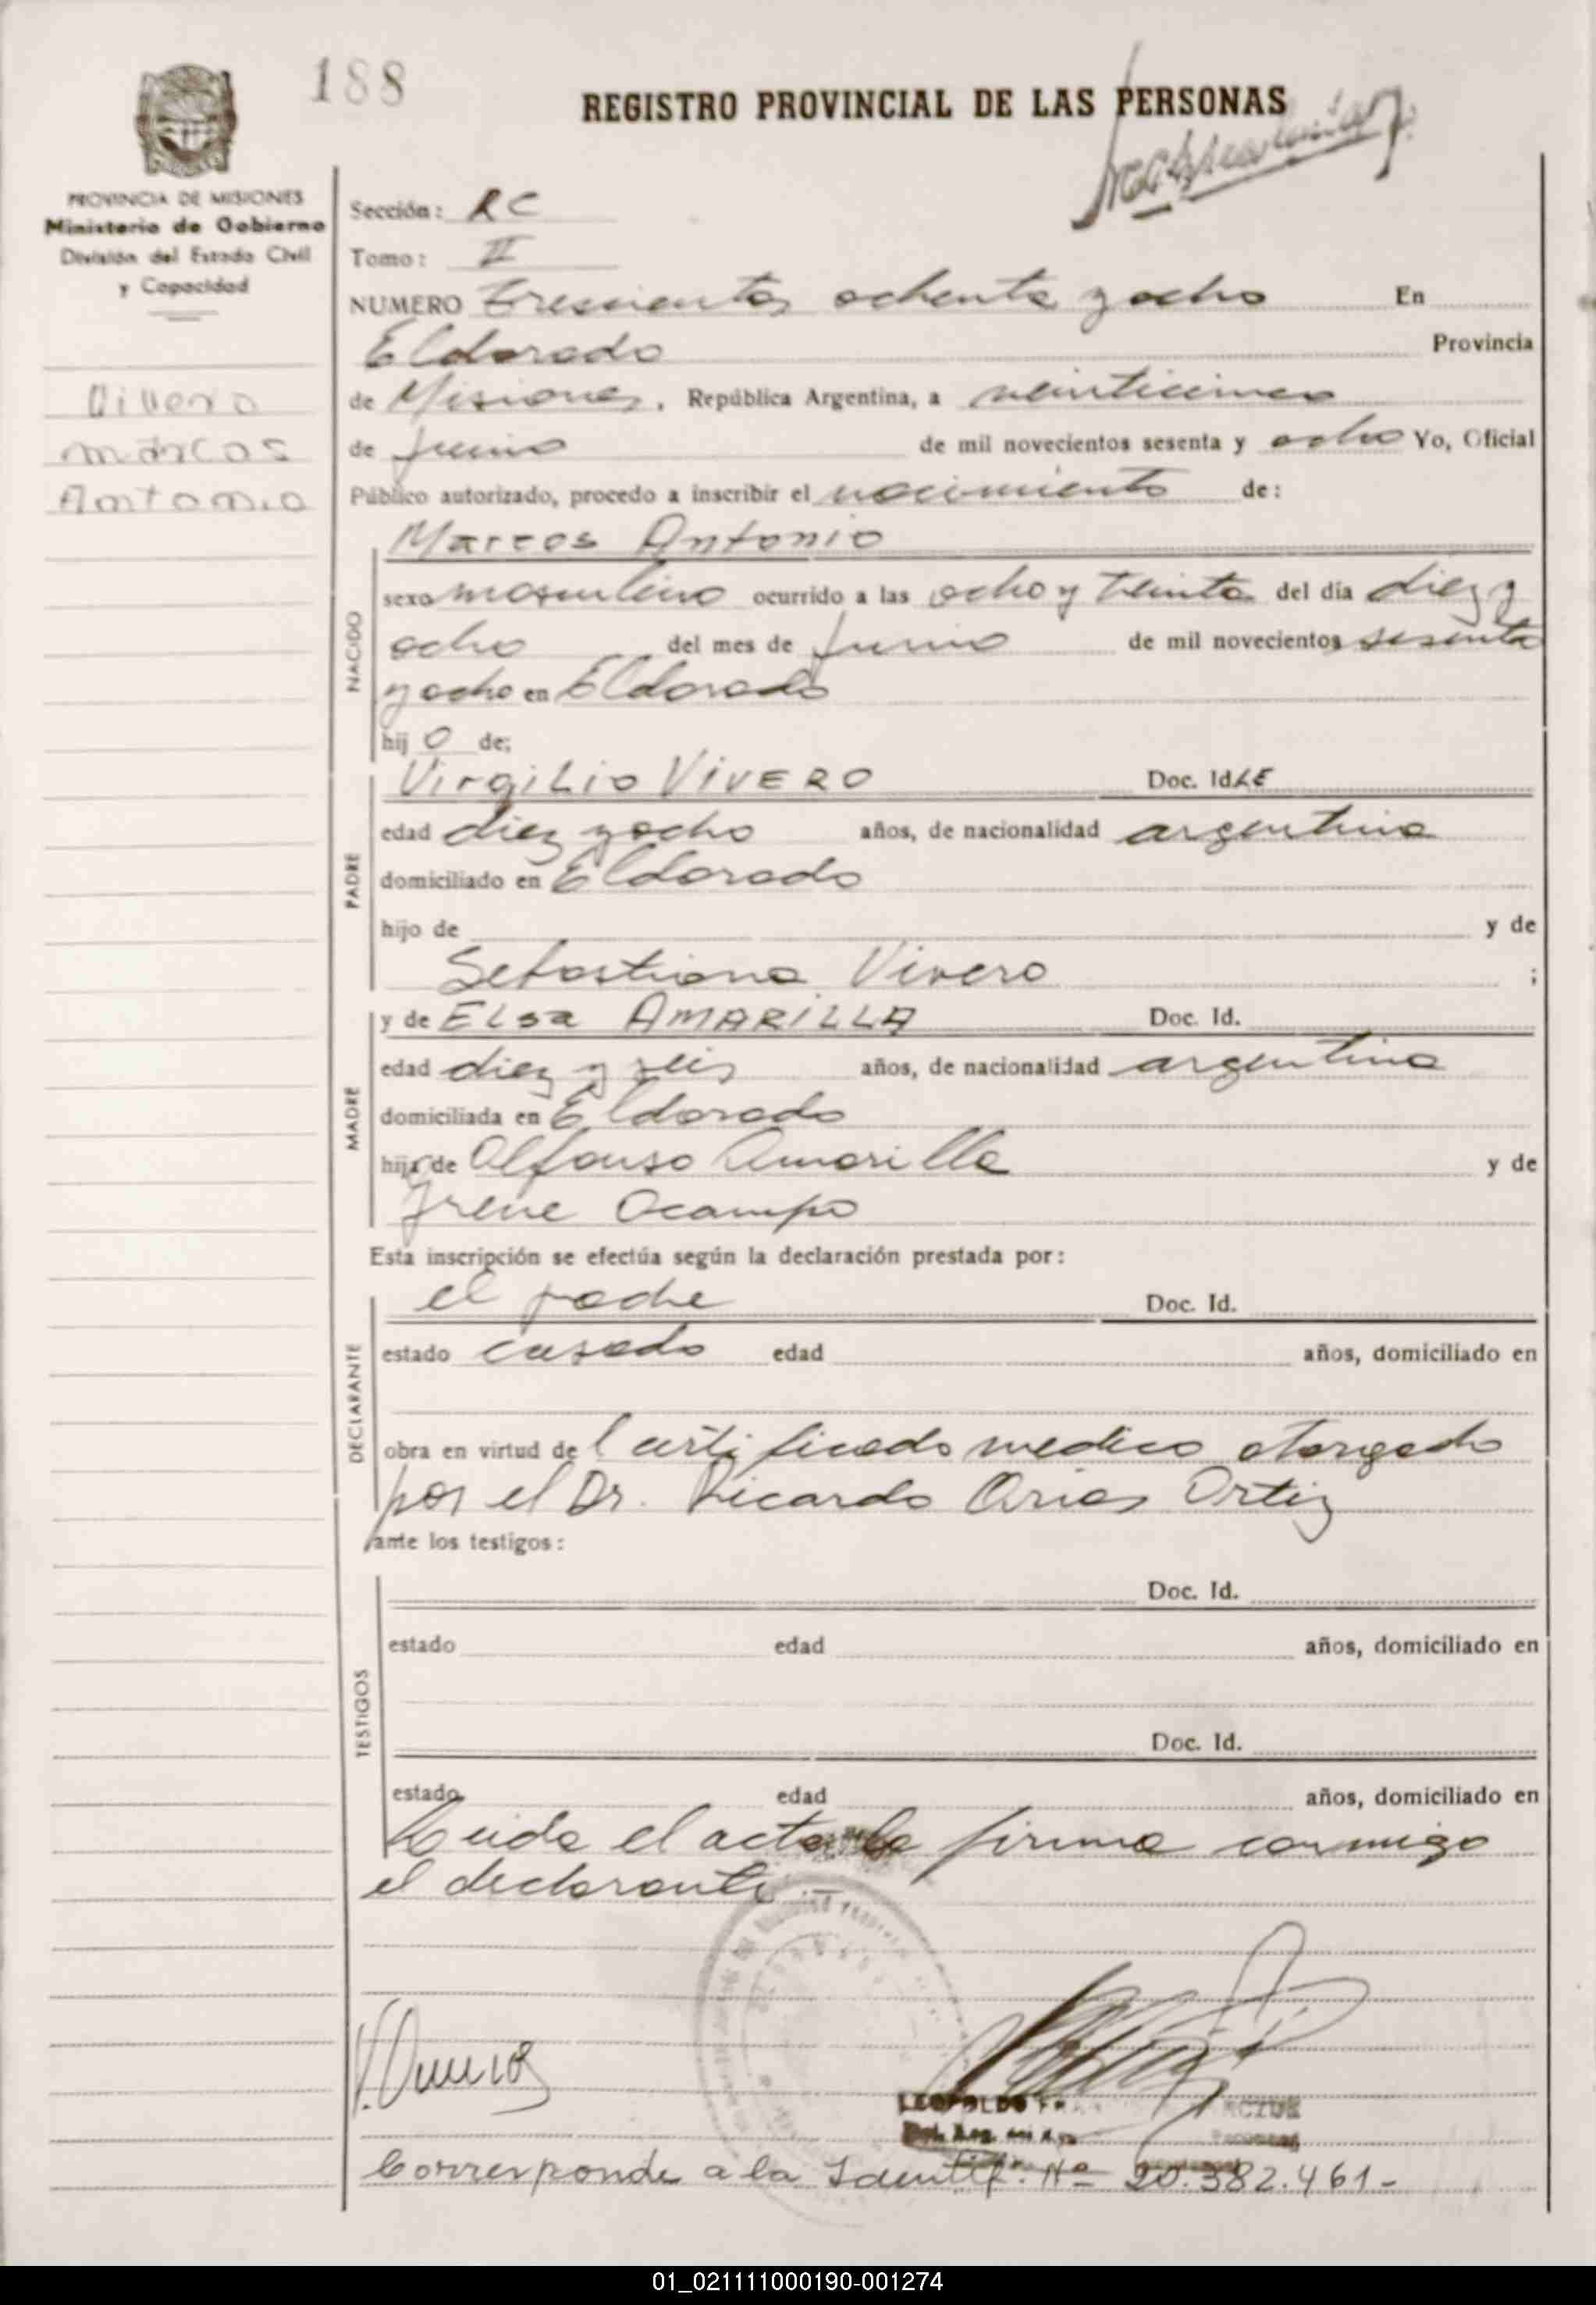 188
REGISTRO PROVINCIAL DE LAS PERSONAS
PROVINCIA DE MISIONES
Ministerio de Gobierno
División del Estado Civil
y Capacidad
Vivero
Marcos
Antonio
Sección: RC
Tomo: II
NUMERO Trescientos ochenta y ocho En
Eldorado Provincia
de Misiones, República Argentina, a veinticinco
de junio de mil novecientos sesenta y ocho Yo, Oficial
Público autorizado, procedo a inscribir el nacimiento de:
Marcos Antonio
NACIDO
sexo masculino ocurrido a las ocho y treinta del día diez y
ocho del mes de junio de mil novecientos sesenta
y ocho en Eldorado
hijo de;
Virgilio VIVERO Doc. Id LE
PADRE
edad diez y ocho años, de nacionalidad argentina
domiciliado en Eldorado
hijo de y de
Sebastiana Vivero ;
y de Elsa AMARILLA Doc. Id.
MADRE
edad diez y seis años, de nacionalidad argentina
domiciliada en Eldorado
hija de Alfonso Amarilla y de
Irene Ocampo
Esta inscripción se efectúa según la declaración prestada por:
el padre Doc. Id.
DECLARANTE
estado casado edad años, domiciliado en
obra en virtud de Certificado medico otorgado
por el Dr. Ricardo Arias Ortiz
ante los testigos:
Doc. Id.
TESTIGOS
estado edad años, domiciliado en
Doc. Id.
estado edad años, domiciliado en
Leida el acta la firma conmigo
el declarante
LEOPOLDO
Corresponde a la Identif. Nº 20.382.461-
01_021111000190-001274